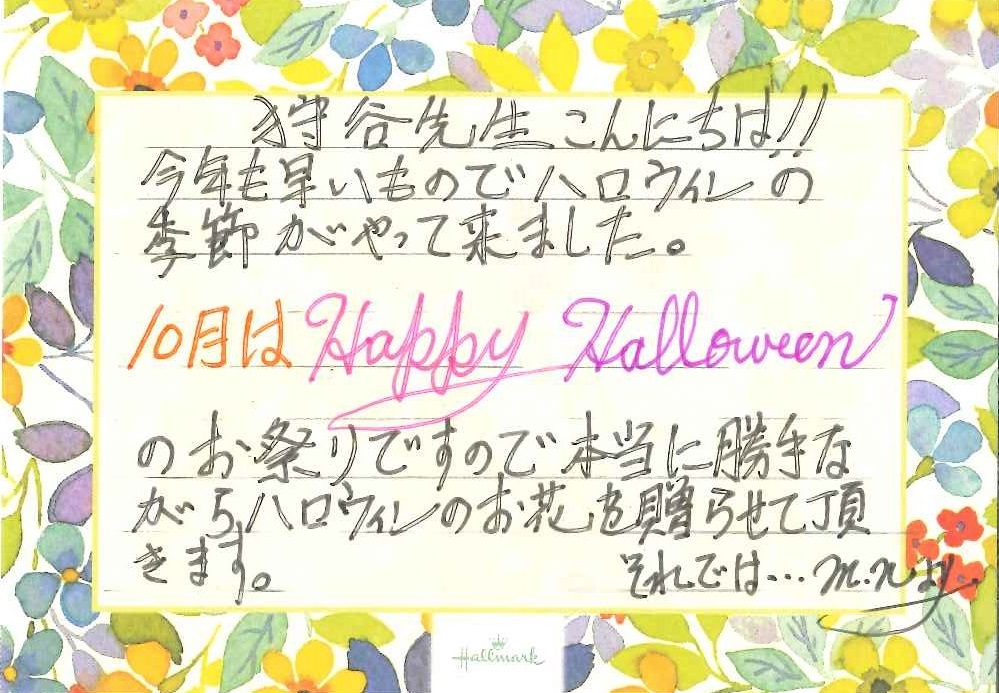 狩谷先生こんにちは!!
今年も早いものでハロウィンの
季節がやって来ました。
10月はHappy Halloween
のお祭りですので本当に勝手な
がらハロウィンのお花を贈らせて頂
きます。 それでは… M.Nより
Hallmark